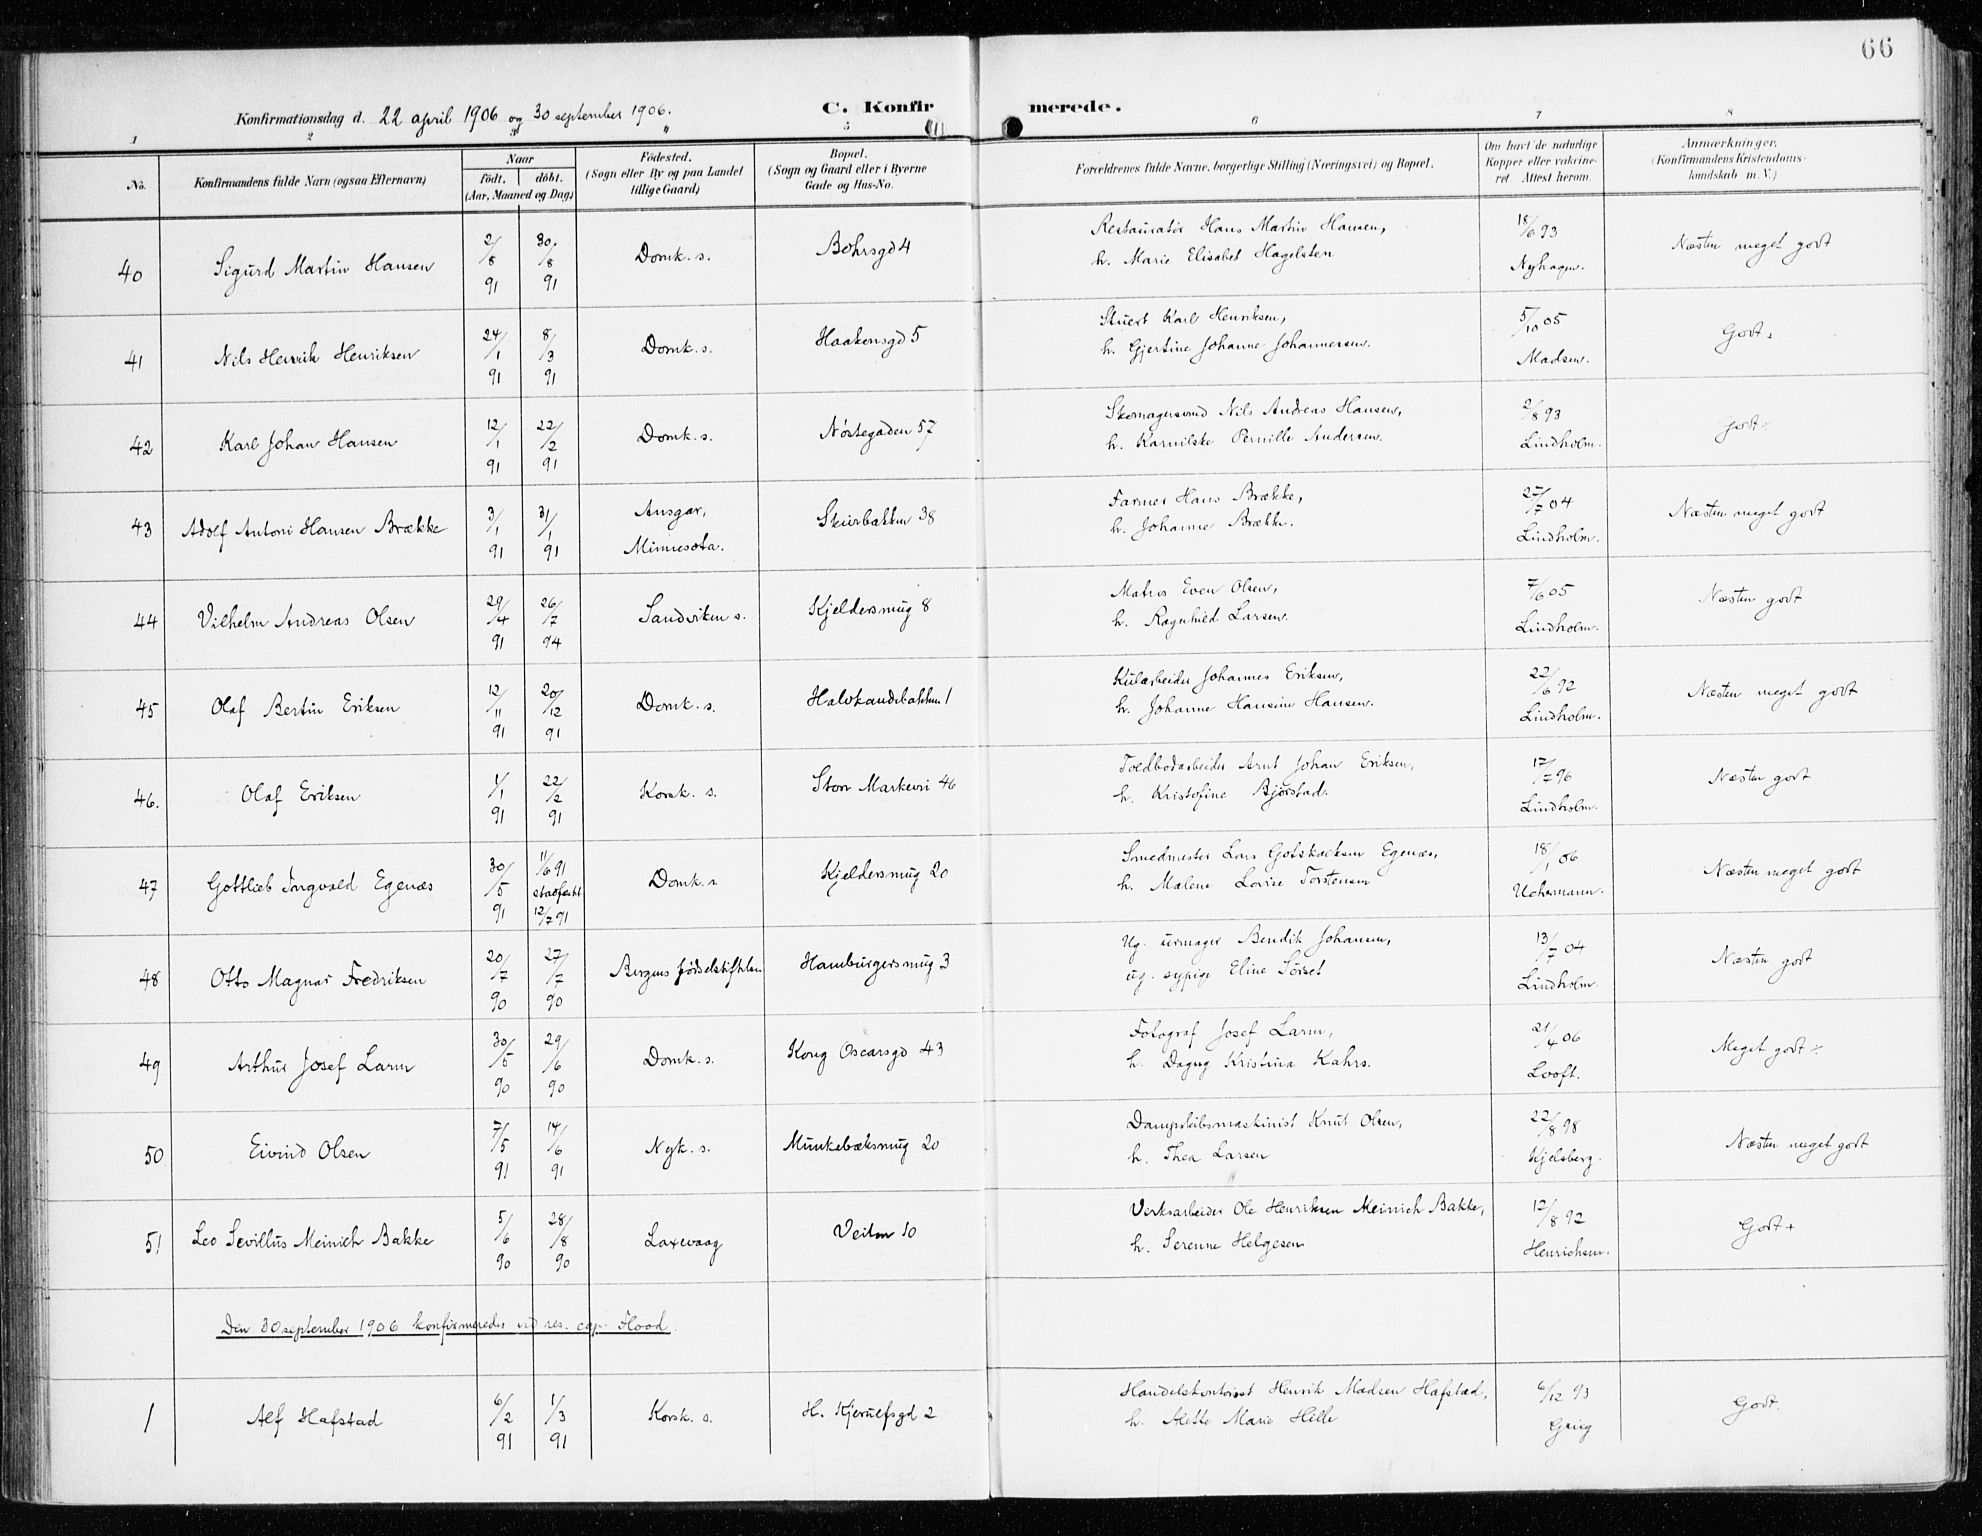 66
Konfirmationsdag d. 22 april 1906 og 30 september 1906.
C. Konfirmerede.
1 2 3 4 5 6 7 8
No. | Konfirmandens fulde Navn (ogsaa Efternavn) | Naar født. døbt. (Aar, Maaned og Dag) | Fødested. (Sogn eller By og paa Landet tillige Gaard) | Bopæl. (Sogn og Gaard eller i Byerne Gade og Hus-No. | Forældrenes fulde Navne, borgerlige Stilling (Næringsvei) og Bopæl. | Om havt de naturlige Kopper eller vakcineret. Attest herom. | Anmærkninger. (Konfirmandens Kristendomskundskab m. V.)
40 Sigurd Martin Hansen 2/8 91 30/8 91 Domk. s. Bohrsgd 4 Restauratør Hans Martin Hansen, h. Marie Elisabet Hagelsten 18/6 93 Nyhagen. Næsten meget godt
41 Nils Henrik Henriksen 24/1 91 8/3 91 Domk. s. Haakonsgd 5 Stuert Karl Henriksen, h. Gjertine Johanne Johannessen. 5/10 05 Madsen. Godt.
42 Karl Johan Hansen 12/1 91 22/2 91 Domk. s. Nøstegaden 57 Skomagersvend Nils Andreas Hansen, h. Karnilske Pernille Andersen. 2/8 93 Lindholm. Godt÷
43 Adolf Antoni Hansen Brække 3/1 91 31/1 91 Ansgar, Minnesota. Skivebakken 38 Farmer Hans Brække, h. Johanne Brække. 27/7 04 Lindholm. Næsten meget godt
44 Vilhelm Andreas Olsen 29/4 91 26/7 94 Sandviken s. Kjeldersmug 8 Matros Even Olsen, h. Ragnhild Larsen. 7/6 05 Lindholm. Næsten godt
45 Olaf Bertin Eriksen 12/11 91 20/12 91 Domk. s. Halvkandebakken 1 Kularbeider Johannes Eriksen, h. Johanne Hansine Hansen. 22/6 92 Lindholm. Næsten meget godt
46. Olaf Eriksen 1/1 91 22/2 91 Korsk. s. Store Markevei 46 Toldbodarbeider Arnt Johan Eriksen, h. Kristofine Bjørstad. 17/7 96 Lindholm. Næsten godt
47 Gottlieb Ingvald Egenæs 30/5 91 11/6 91 stadfæstet 12/7 91 Domk. s Kjeldersmug 20 Smedmester Lars Gotskalksen Egenæs, h. Malene Lovise Torstensen 18/1 06 Uchermann. Næsten meget godt
48 Otto Magnar Fredriksen 20/7 90 27/7 90 Bergens fødselsstiftelse Hamburgersmug 3 Ug. urmager Bendik Johansen, ug. sypige Eline Sørset 13/7 04 Lindholm. Næsten godt
49 Arthur Josef Larm 30/5 90 29/6 90 Domk. s. Kong Oscarsgd 43 Fotograf Josef Larm, h. Dagny Kristina Kahrs. 21/4 06 Looft. Meget godt ÷
50 Eivind Olsen 7/5 91 14/6 91 Nyk. s. Munkebæksmug 20 Dampskibsmaskinist Knut Olsen, h. Thea Larsen 22/8 98 Kjelsberg. Næsten meget godt
51 Leo Sevillus Meinich Bakke 5/6 90 28/8 90 Laxevaag Veiten 10 Verksarbeider Ole Henriksen Meinich Bakke, h. Serenne Helgesen 12/8 92 Henrichsen. Godt +
Den 30 september 1906 konfirmeredes ved res. cap. Flood.
1 Alf Hafstad 6/2 91 1/3 91 Korsk. s. H. Kjerulfsgd 2 Handelskontorist Henrik Madsen Hafstad, h. Alette Marie Hille 6/12 93 Grieg Godt.